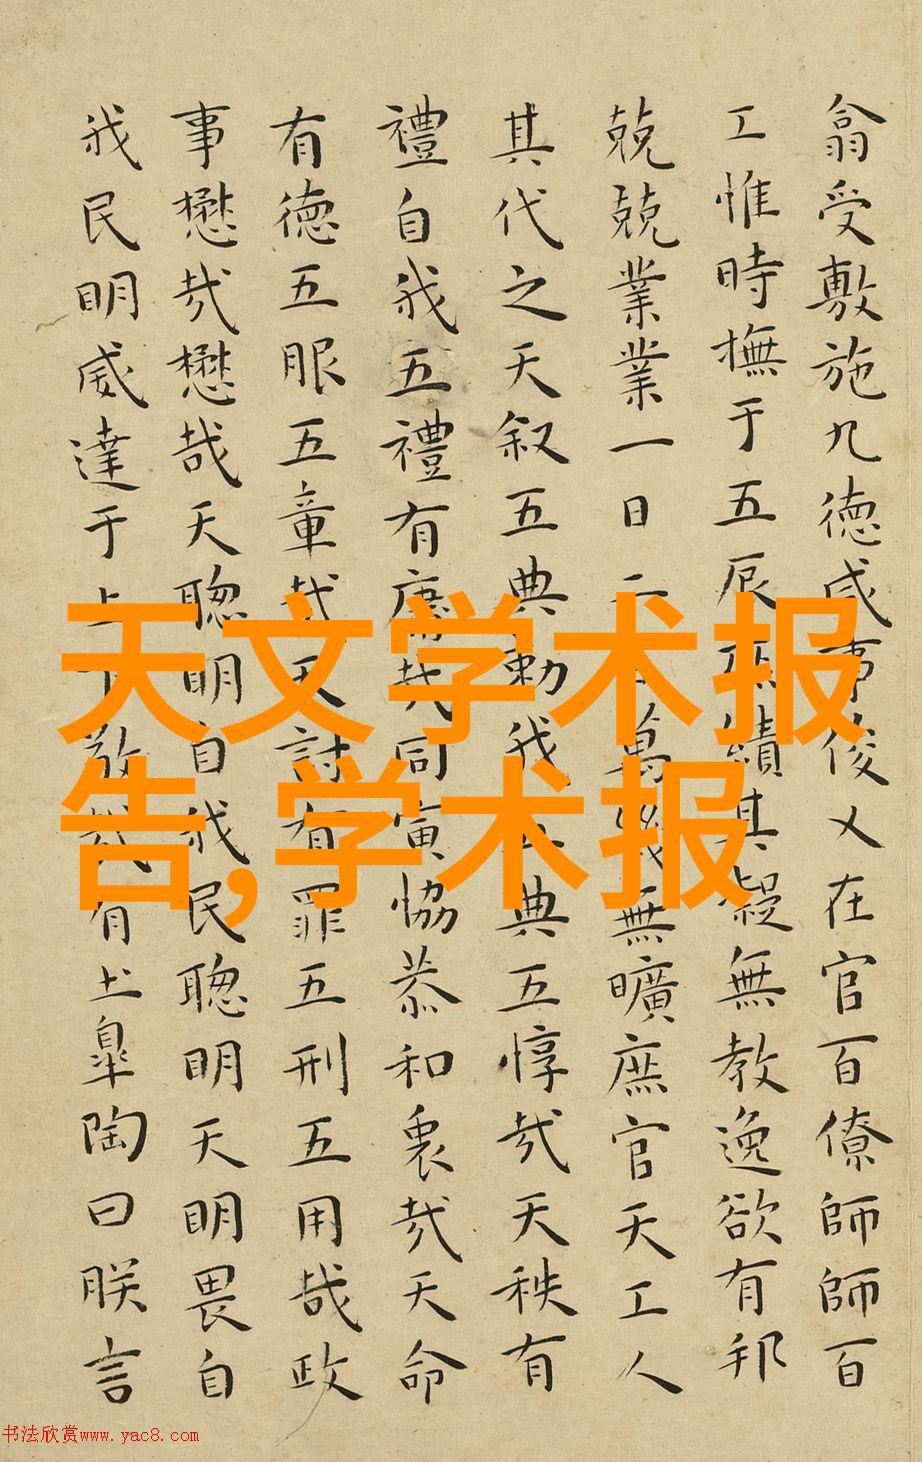 翕受敷施九德咸事俊乂在官百僚師師百
工惟時撫于五辰庶績其凝無教逸欲有邦
兢兢業業一日二日萬幾無曠庶官天工人
其代之天叙五典勑我五典五惇哉天秩有
禮自我五禮有庸哉同寅恊恭和衷哉天命
有德五服五章哉天討有罪五刑五用哉政
事懋哉懋哉天聰明自我民聰明天明畏自
我民明威達于上下敬哉有土皐陶曰朕言
天文学术报
告,学术报
书法欣赏www.yac8.com